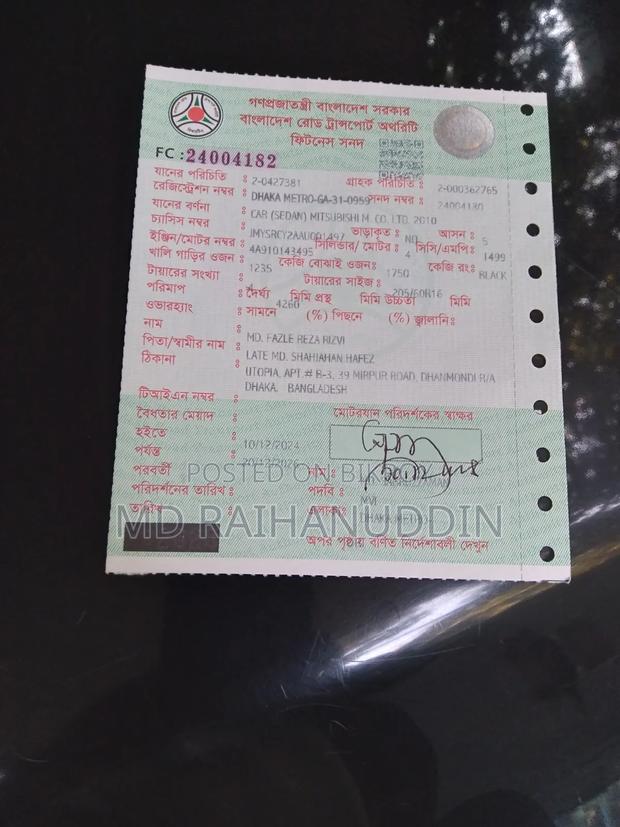 গণপ্রজাতন্ত্রী বাংলাদেশ সরকার
বাংলাদেশ রোড ট্রান্সপোর্ট অথরিটি
ফিটনেস সনদ
FC : 24004182
যানের পরিচিতি : 2-0427381 গ্রাহক পরিচিতি : 2-000362765
রেজিস্ট্রেশন নম্বর : DHAKA METRO-GA-31-0959 সনদ নম্বর :
যানের বর্ণনা : CAR (SEDAN) MITSUBISHI M. CO. LTD. 2010
চ্যাসিস নম্বর : ভাড়াকৃত : NO আসন : 5
ইঞ্জিন/মোটর নম্বর : 4A910143495 সিলিন্ডার/ মোটর : 4 সিসি/এমপি: 1499
খালি গাড়ির ওজন : 1235 কেজি বোঝাই ওজন: 1750 কেজি রং: BLACK
টায়ারের সংখ্যা : টায়ারের সাইজ : 205/60R16
পরিমাপ : দৈর্ঘ্য 4260 মিমি প্রস্থ মিমি উচ্চতা মিমি
ওভারহ্যাং : সামনে (%) পিছনে (%) জ্বালানি:
নাম : MD. FAZLE REZA RIZVI
পিতা/স্বামীর নাম : LATE MD. HAFEZ
ঠিকানা : UTOPIA, APT.# B-3, 39 MIRPUR ROAD, DHANMONDI R/A
DHAKA. BANGLADESH
টিআইএন নম্বর :
বৈধতার মেয়াদ : মোটরযান পরিদর্শকের স্বাক্ষর
হইতে : 10/12/2024
পর্যন্ত :
পরবর্তী : নাম :
পরিদর্শনের তারিখ : পদবি : MVI
তারিখ : এলাকা :
অপর পৃষ্ঠায় বর্ণিত নির্দেশাবলী দেখুন
POSTED ON
MD RAIHANUDDIN